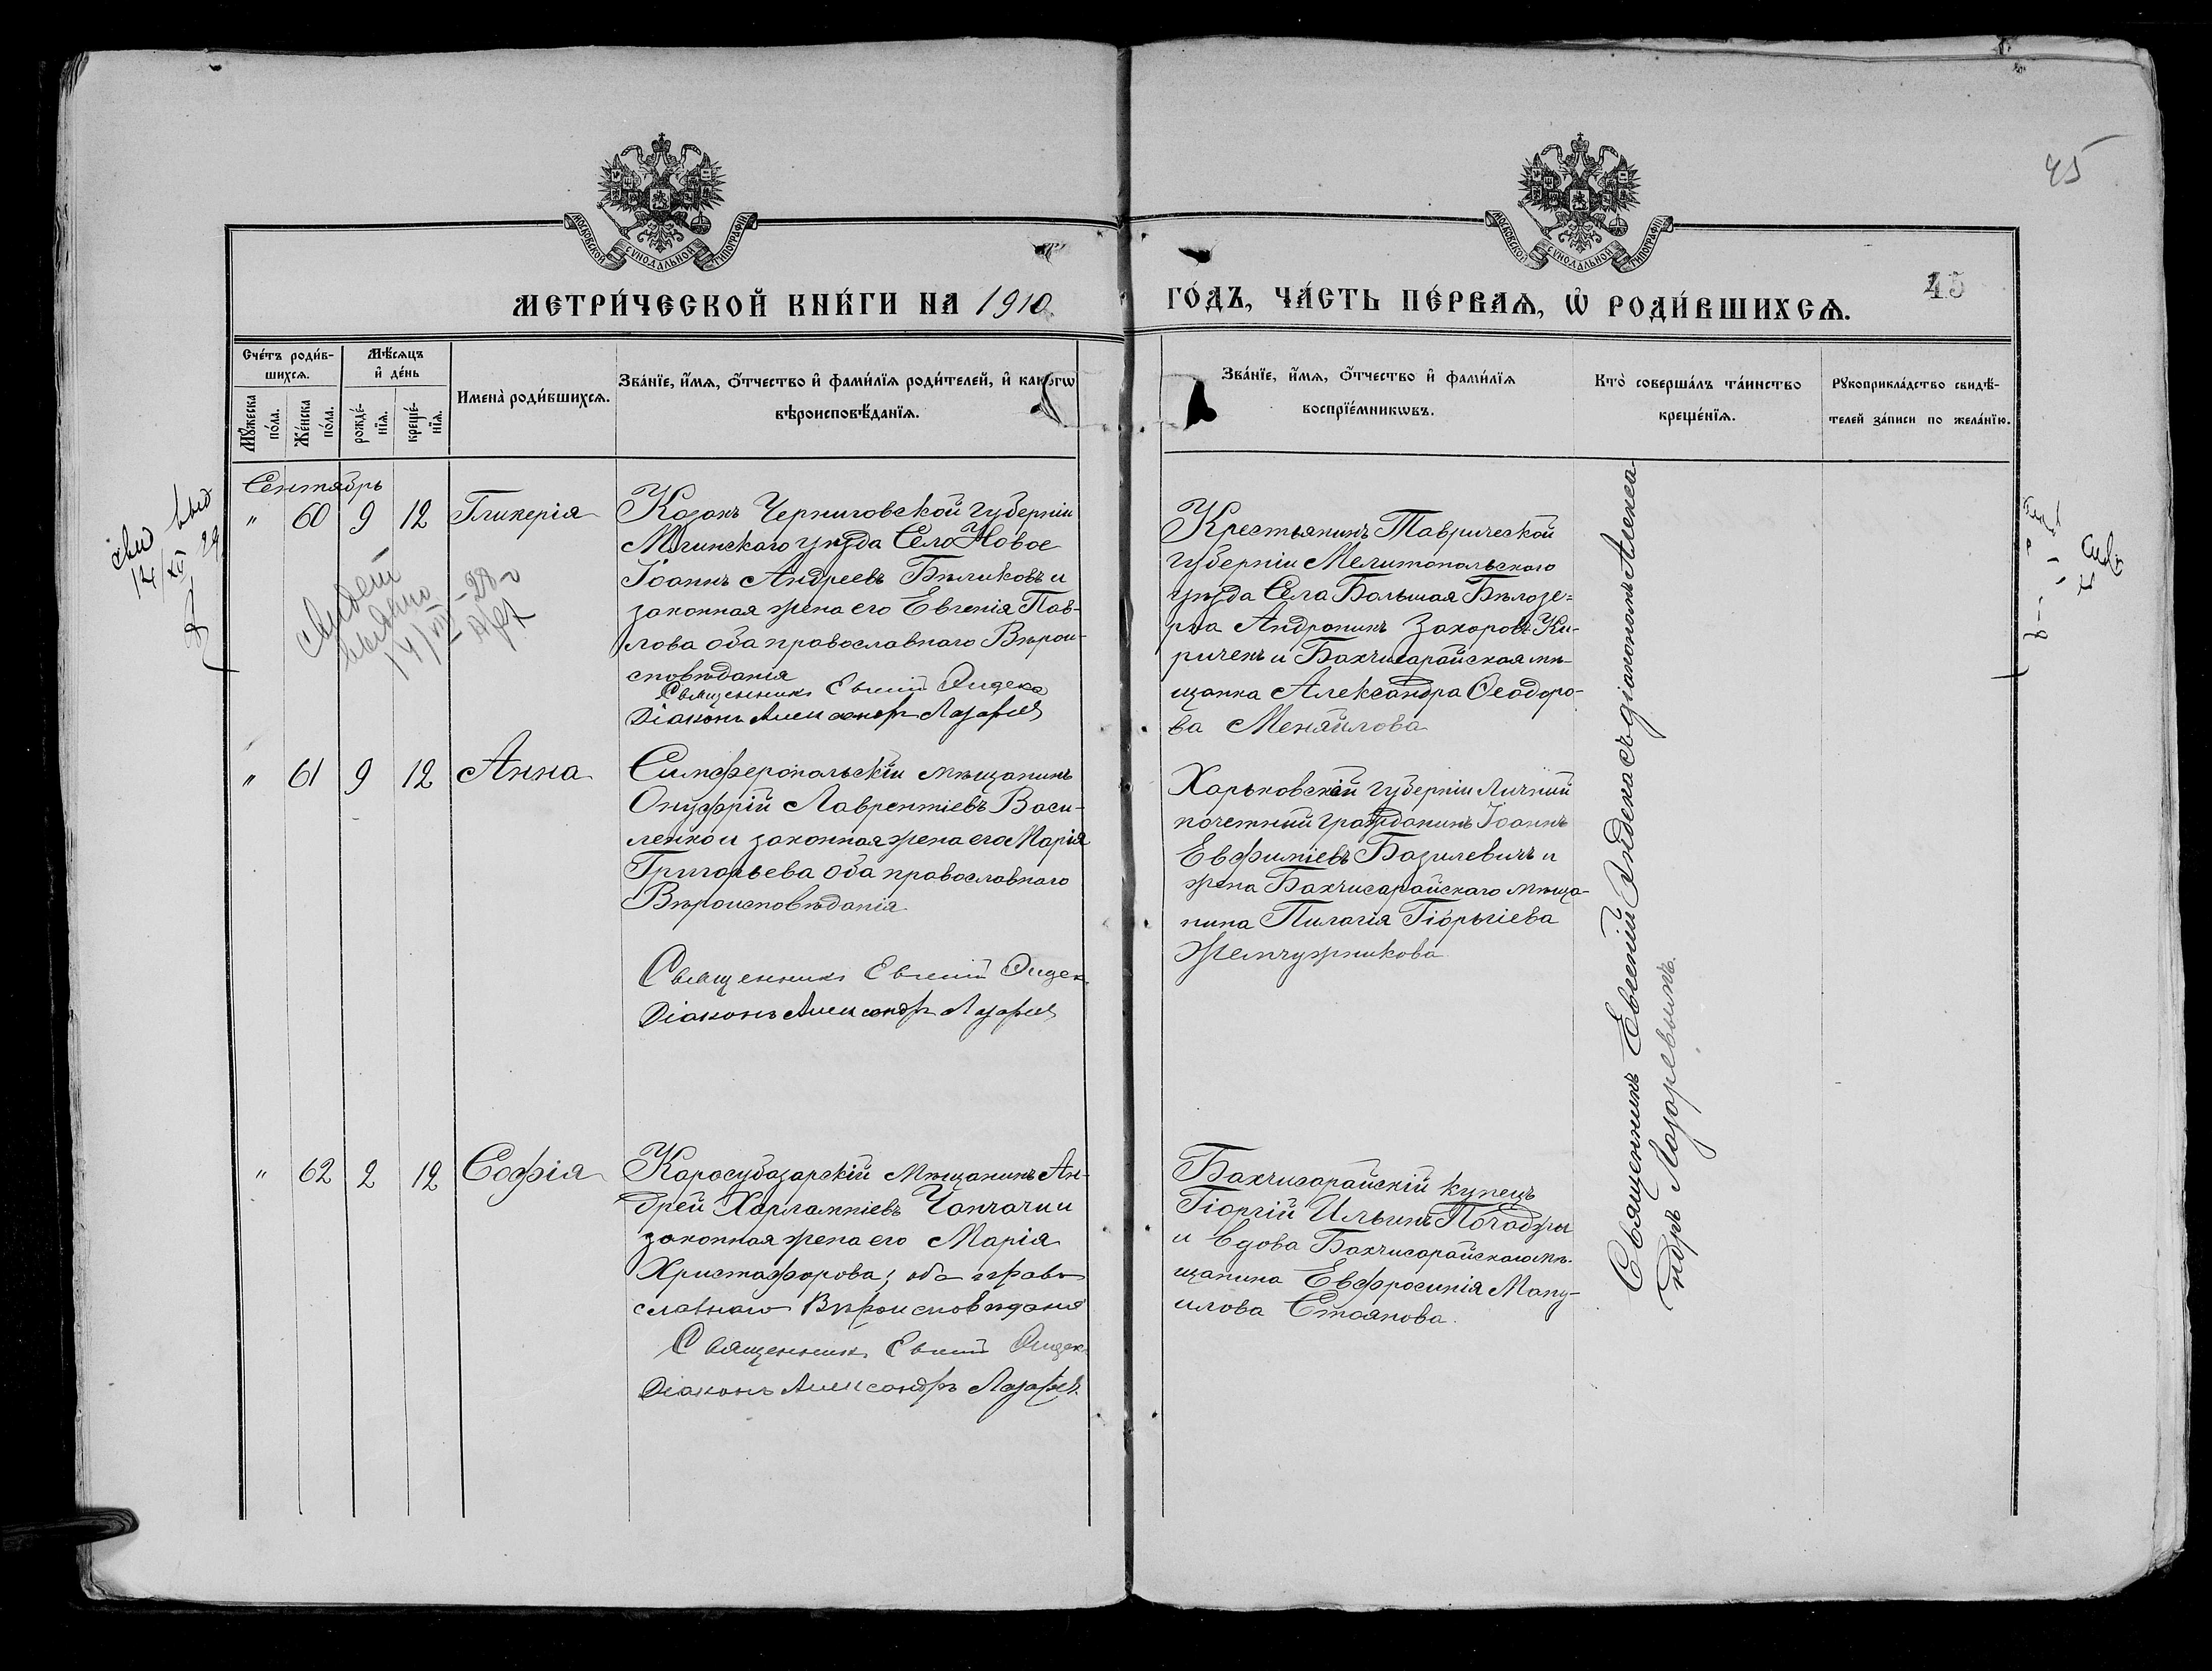 45
МОСКОВСКОЙ СѴНОДАЛЬНОЙ ТИПОГРАФІИ
МОСКОВСКОЙ СѴНОДАЛЬНОЙ ТИПОГРАФІИ
МЕТРИ́ЧЕСКОЙ КНИ́ГИ НА 1910
ГО́ДЪ, ЧА́СТЬ ПЕ́РВАѦ, Ѡ РОДИ́ВШИХСѦ.
45
Сче́тъ роди́в-
шихсѧ.
Мꙋ́жеска
по́ла.
Же́нска
по́ла.
Мѣ́сѧцъ
и де́нь
рожде́-
нїѧ.
креще́-
нїѧ.
Имена̀ роди́вшихсѧ.
Зва́нїе, и́мѧ, о́тчество и фами́лїѧ роди́телей, и како́гѡ
вѣроисповѣ́данїѧ.
Зва́нїе, и́мѧ, о́тчество и фами́лїѧ
воспрїе́мникѡвъ.
Кто̀ соверша́лъ та́инство
креще́нїѧ.
Рꙋкоприкла́дство свидѣ́-
телей за́писи по жела́нїю.
Сентябрь
" 60 9 12 Гликерія
Козакъ Черниговской губерніи
Мглинскаго уѣзда Село Новое
Іоаннъ Андреевъ Бѣликовъ и
законная жена его Евгенія Пав-
лова оба православнаго Вѣрои-
сповѣданія
Священникъ Евгеній Эндека
Діаконъ Александръ Лазаревъ
Крестьянинъ Таврической
губерніи Мелитопольскаго
уѣзда Села Большая Бѣлозе-
рка Андроникъ Захоровъ Ки-
риченъ и Бахчисарайская мѣ-
щанка Александра Ѳеодоро-
ва Меняйлова
свид выд
14/XI 29
Свидет
выдано
14/VIII-28
" 61 9 12 Анна
Симферопольскій мѣщанинъ
Онуфрій Лаврентіевъ Васи-
ленко и законная жена его Марія
Григорьева оба православнаго
Вѣроисповѣданія
Священникъ Евгеній Эндека
Діаконъ Александръ Лазаревъ
Харьковской губерніи Личный
почетный гражданинъ Іоаннъ
Евфиміевъ Базилевичъ и
жена Бахчисарайскаго мѣща-
нина Пилагія Гіоргіева
Жемчужникова
" 62 2 12 Софія
Карасубазарскій мѣщанинъ Ан-
дрей Харлампіевъ Чапчачи и
законная жена его Марія
Христофорова; оба право
славнаго Вѣроисповѣданія
Священникъ Евгеній Эндека
Діаконъ Александръ Лазаревъ
Бахчисарайскій купецъ
Гіоргій Ильинъ Почаджи
и вдова Бахчисарайскаго мѣ-
щанина Евфросинія Ману-
илова Стоянова.
Священникъ Евгеній Эндека съ діакономъ Алекса-
ндръ Лазаревымъ.